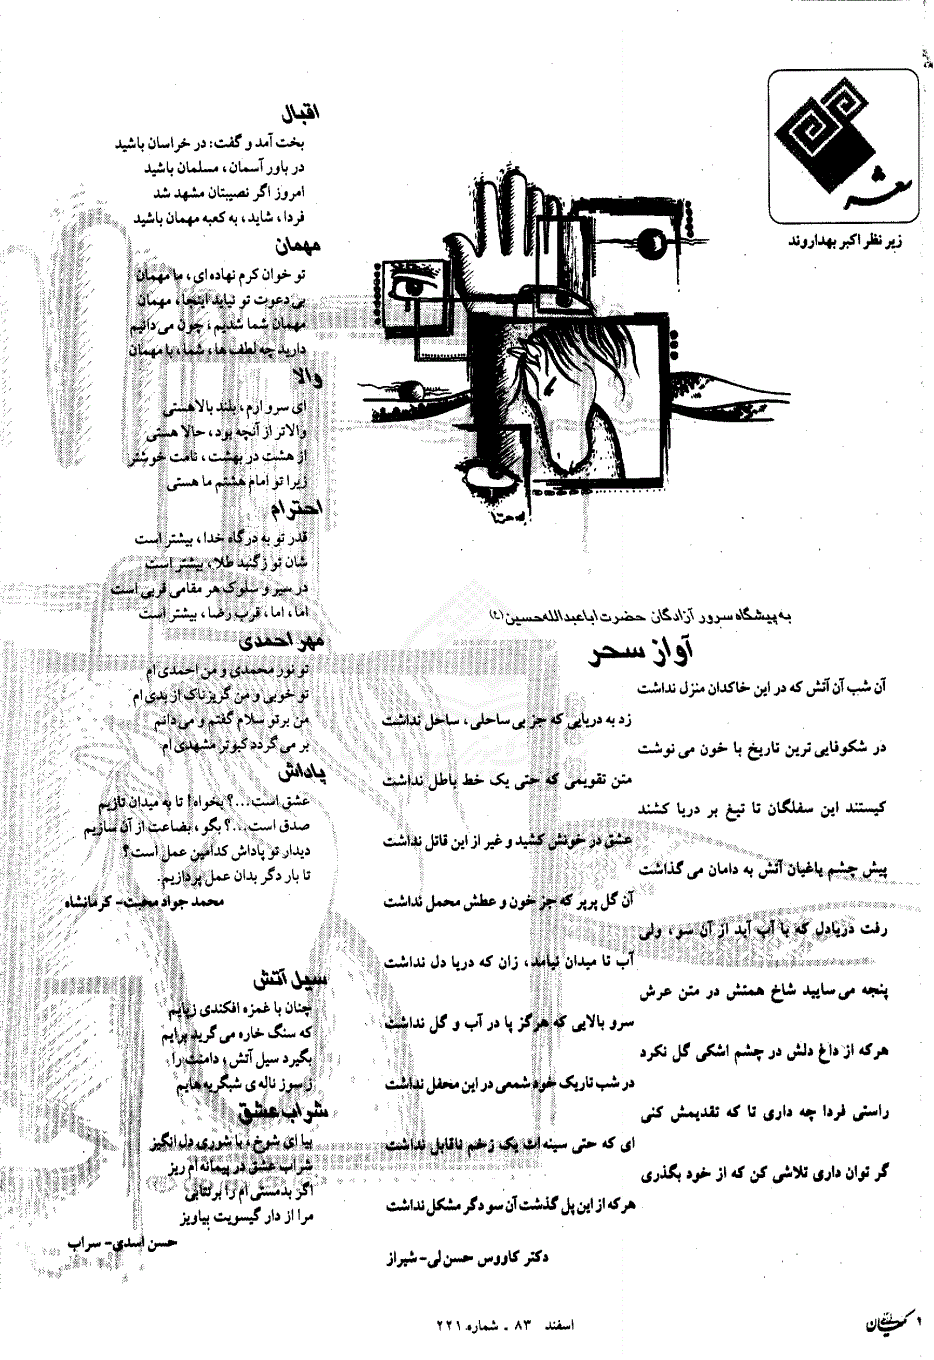 شعر
زیر نظر اکبر بهداروند
به پیشگاه سرور آزادگان حضرت اباعبدالله حسین (ع)
آواز سحر
آن شب آن آتش که در این خاکدان منزل نداشت
زد به دریایی که جز بی ساحلی، ساحل نداشت
در شکوفایی ترین تاریخ با خون می نوشت
متن تقویمی که حتی یک خط باطل نداشت
کیستند این سفلگان تا تیغ بر دریا کشند
عشق در خونش کشید و غیر از این قاتل نداشت
پیش چشم یاغیان آتش به دامان می گذاشت
آن گل پرپر که جز خون و عطش محمل نداشت
رفت دریادل که با آب آید از آن سو، ولی
آب تا میدان نیامد، زان که دریا دل نداشت
پنجه می سایید شاخ همتش در متن عرش
سرو بالایی که هرگز پا در آب و گل نداشت
هرکه از داغ دلش در چشم اشکی گل نکرد
در شب تاریک خود شمعی در این محفل نداشت
راستی فردا چه داری تا که تقدیمش کنی
ای که حتی سینه ات یک زخم ناقابل نداشت
گر توان داری تلاشی کن که از خود بگذری
هرکه از این پل گذشت آن سو دگر مشکل نداشت
دکتر کاووس حسن لی- شیراز
اقبال
بخت آمد و گفت: در خراسان باشید
در باور آسمان، مسلمان باشید
امروز اگر نصیبتان مشهد شد
فردا، شاید، به کعبه مهمان باشید
مهمان
تو خوان کرم نهاده ای، ما مهمان
بی دعوت تو نیاید اینجا، مهمان
مهمان شما شدیم، چون می دانیم
دارید چه لطف ها، شما، با مهمان
والا
ای سرو ارم، بلند بالا هستی
والاتر از آنچه بود، حالا هستی
از هشت در بهشت، نامت خوشتر
زیرا تو امام هشتم ما هستی
احترام
قدر تو به درگاه خدا، بیشتر است
شان تو زگنبد طلا، بیشتر است
در سیر و سلوک هر مقامی قربی است
اما، اما، قرب رضا، بیشتر است
مهر احمدی
تو نور محمدی و من احمدی ام
تو خوبی و من گریزناک از بدی ام
من برتو سلام گفتم و می دانم
بر می گردد کبوتر مشهدی ام
پاداش
عشق است...؟ بخواه! تا به میدان تازیم
صدق است...؟ بگو، بضاعت از آن سازیم
دیدار تو پاداش کدامین عمل است؟
تا بار دگر بدان عمل پردازیم.
محمد جواد محبت- کرمانشاه
سیل آتش
چنان با غمزه افکندی زپایم
که سنگ خاره می گرید برایم
بگیرد سیل آتش، دامنت را
ز سوز ناله ی شبگریه هایم
شراب عشق
بیا ای شوخ، با شوری دل انگیز
شراب عشق در پیمانه ام ریز
اگر بدمستی ام را برنتابی
مرا از دار گیسویت بیاویز
حسن اسدی- سراب
اسفند ۸۳ - شماره ۲۲۱
کیهان